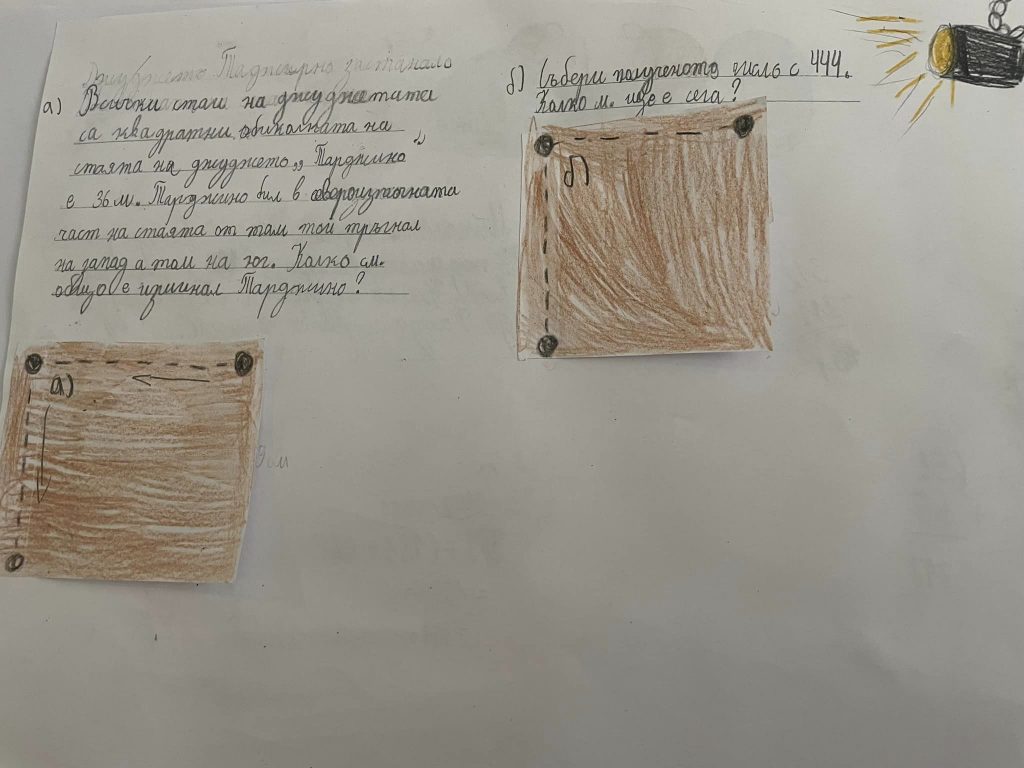 Джуджето Таджирно застанало
а) Всички стаи на джуджетата
са квадратни, обиколката на
стаята на джуджето „Тарджино“
е 36 м. Тарджино бил в
част на стаята от там той тръгнал
на запад а там на юг. Колко см.
общо е изминал Тарджино?
б) Събери полученото число с 444.
Колко м. ще е сега?
б)
а)
9 см